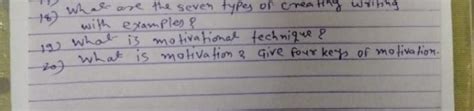 18) What are the seven types of creating writing
with examples?
19) What is motivational technique?
20) What is motivation? Give four keys of motivation.